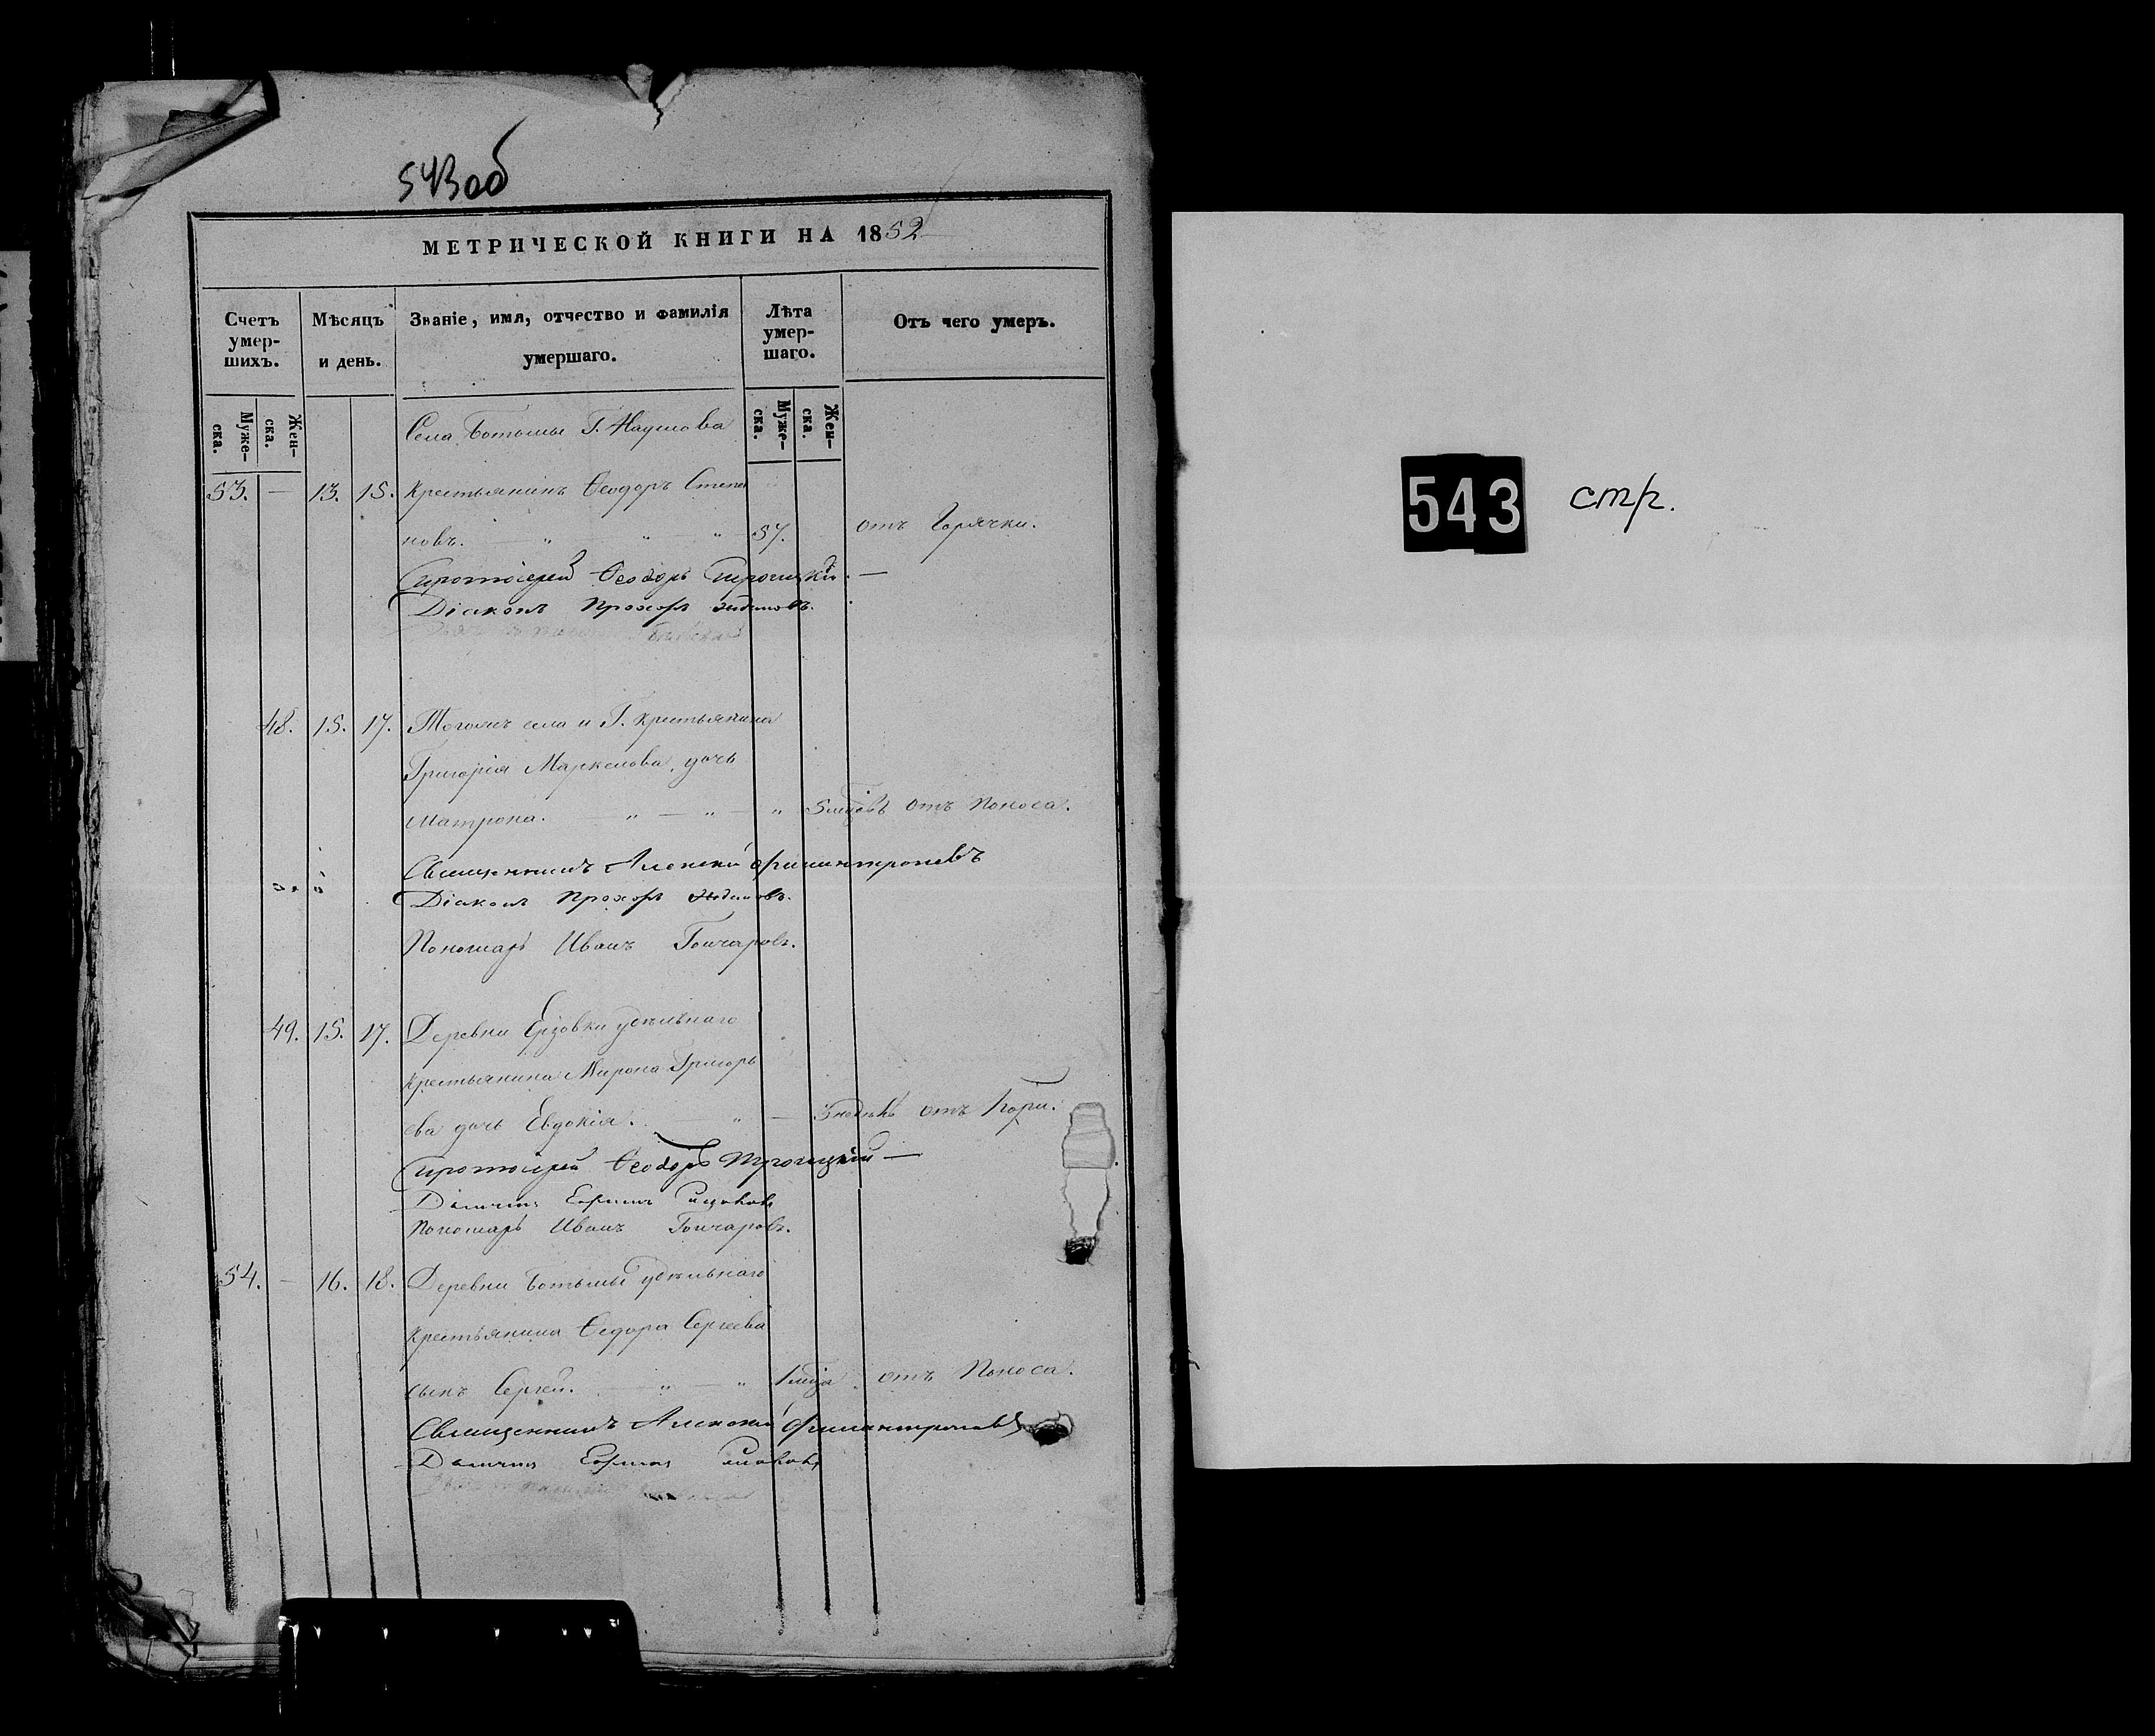 543 об
МЕТРИЧЕСКОЙ КНИГИ НА 1852
Счетъ умер-шихъ.
Мѣсяцъ и день.
Званіе, имя, отчество и фамилія умершаго.
Лѣта умер-шаго.
Отъ чего умеръ.
Муже-ска.
Жен-ска.
Муже-ска.
Жен-ска.
Села Ботьмы Г. Наумова
53. — 13. 15. Крестьянинъ Ѳеодоръ Степа
новъ. — " " " 57. отъ Горячки.
Протоіерей Ѳеодоръ Троицкій. —
Діаконъ Прохоръ
48. 15. 17. Тогожъ села и Г. крестьянина
Григорія Маркелова, дочь
Матрона. — " — " — " 5 мцовъ отъ Поноса.
Священникъ Алексій Филантроповъ
Діаконъ Прохоръ
Пономарь Иванъ Гончаровъ.
49. 15. 17. Деревни Ерзовки удѣльнаго
крестьянина Мирона Григорь
ева дочь Евдокія. — " — 3 недѣль отъ Кори.
Протоіерей Ѳеодоръ Троицкій —
Пономарь Иванъ Гончаровъ.
54. — 16. 18. Деревни Ботьмы удѣльнаго
крестьянина Ѳедора Сергеева
сынъ Сергей. — " — " 1 мца. отъ Поноса.
Священникъ Алексій Филантроповъ
543 стр.